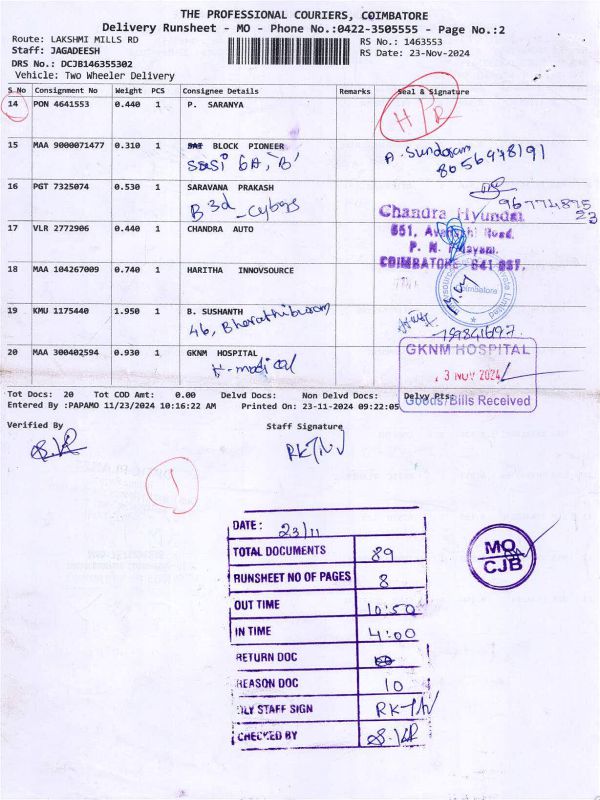 THE PROFESSIONAL COURIERS, COIMBATORE
Delivery Runsheet - MO - Phone No.:0422-3505555 - Page No.:2
Route: LAKSHMI MILLS RD RS No.: 1463553
Staff: JAGADEESH RS Date: 23-Nov-2024
DRS No.: DCJB146355302
Vehicle: Two Wheeler Delivery
S No Consignment No Weight PCS Consignee Details Remarks Seal & Signature
14 PON 4641553 0.440 1 P. SARANYA H/R
15 MAA 9000071477 0.310 1 SAI BLOCK PIONEER A. Sundaram
sasi GA, 'B' 8056978191
16 PGT 7325074 0.530 1 SARAVANA PRAKASH
B3d_cybers 96774875
23
17 VLR 2772906 0.440 1 CHANDRA AUTO
Chandra Hyundai
651, Road,
P. N.
COIMBATORE - 641 037.
18 MAA 104267009 0.740 1 HARITHA INNOVSOURCE
Coimbatore
Private Limited
19 KMU 1175440 1.950 1 B. SUSHANTH
46, Bharathipuram
20 MAA 300402594 0.930 1 GKNM HOSPITAL
H-modical
GKNM HOSPITAL
3 NOV 2024
Goods/Bills Received
Tot Docs: 20 Tot COD Amt: 0.00 Delvd Docs: Non Delvd Docs: Delvy Pts:
Entered By :PAPAMO 11/23/2024 10:16:22 AM Printed On: 23-11-2024 09:22:05
Verified By Staff Signature
1
DATE : 23/11
TOTAL DOCUMENTS 89
RUNSHEET NO OF PAGES 8
OUT TIME 10:50
IN TIME 4:00
RETURN DOC
REASON DOC 10
DLY STAFF SIGN
CHECKED BY
MO
CJB